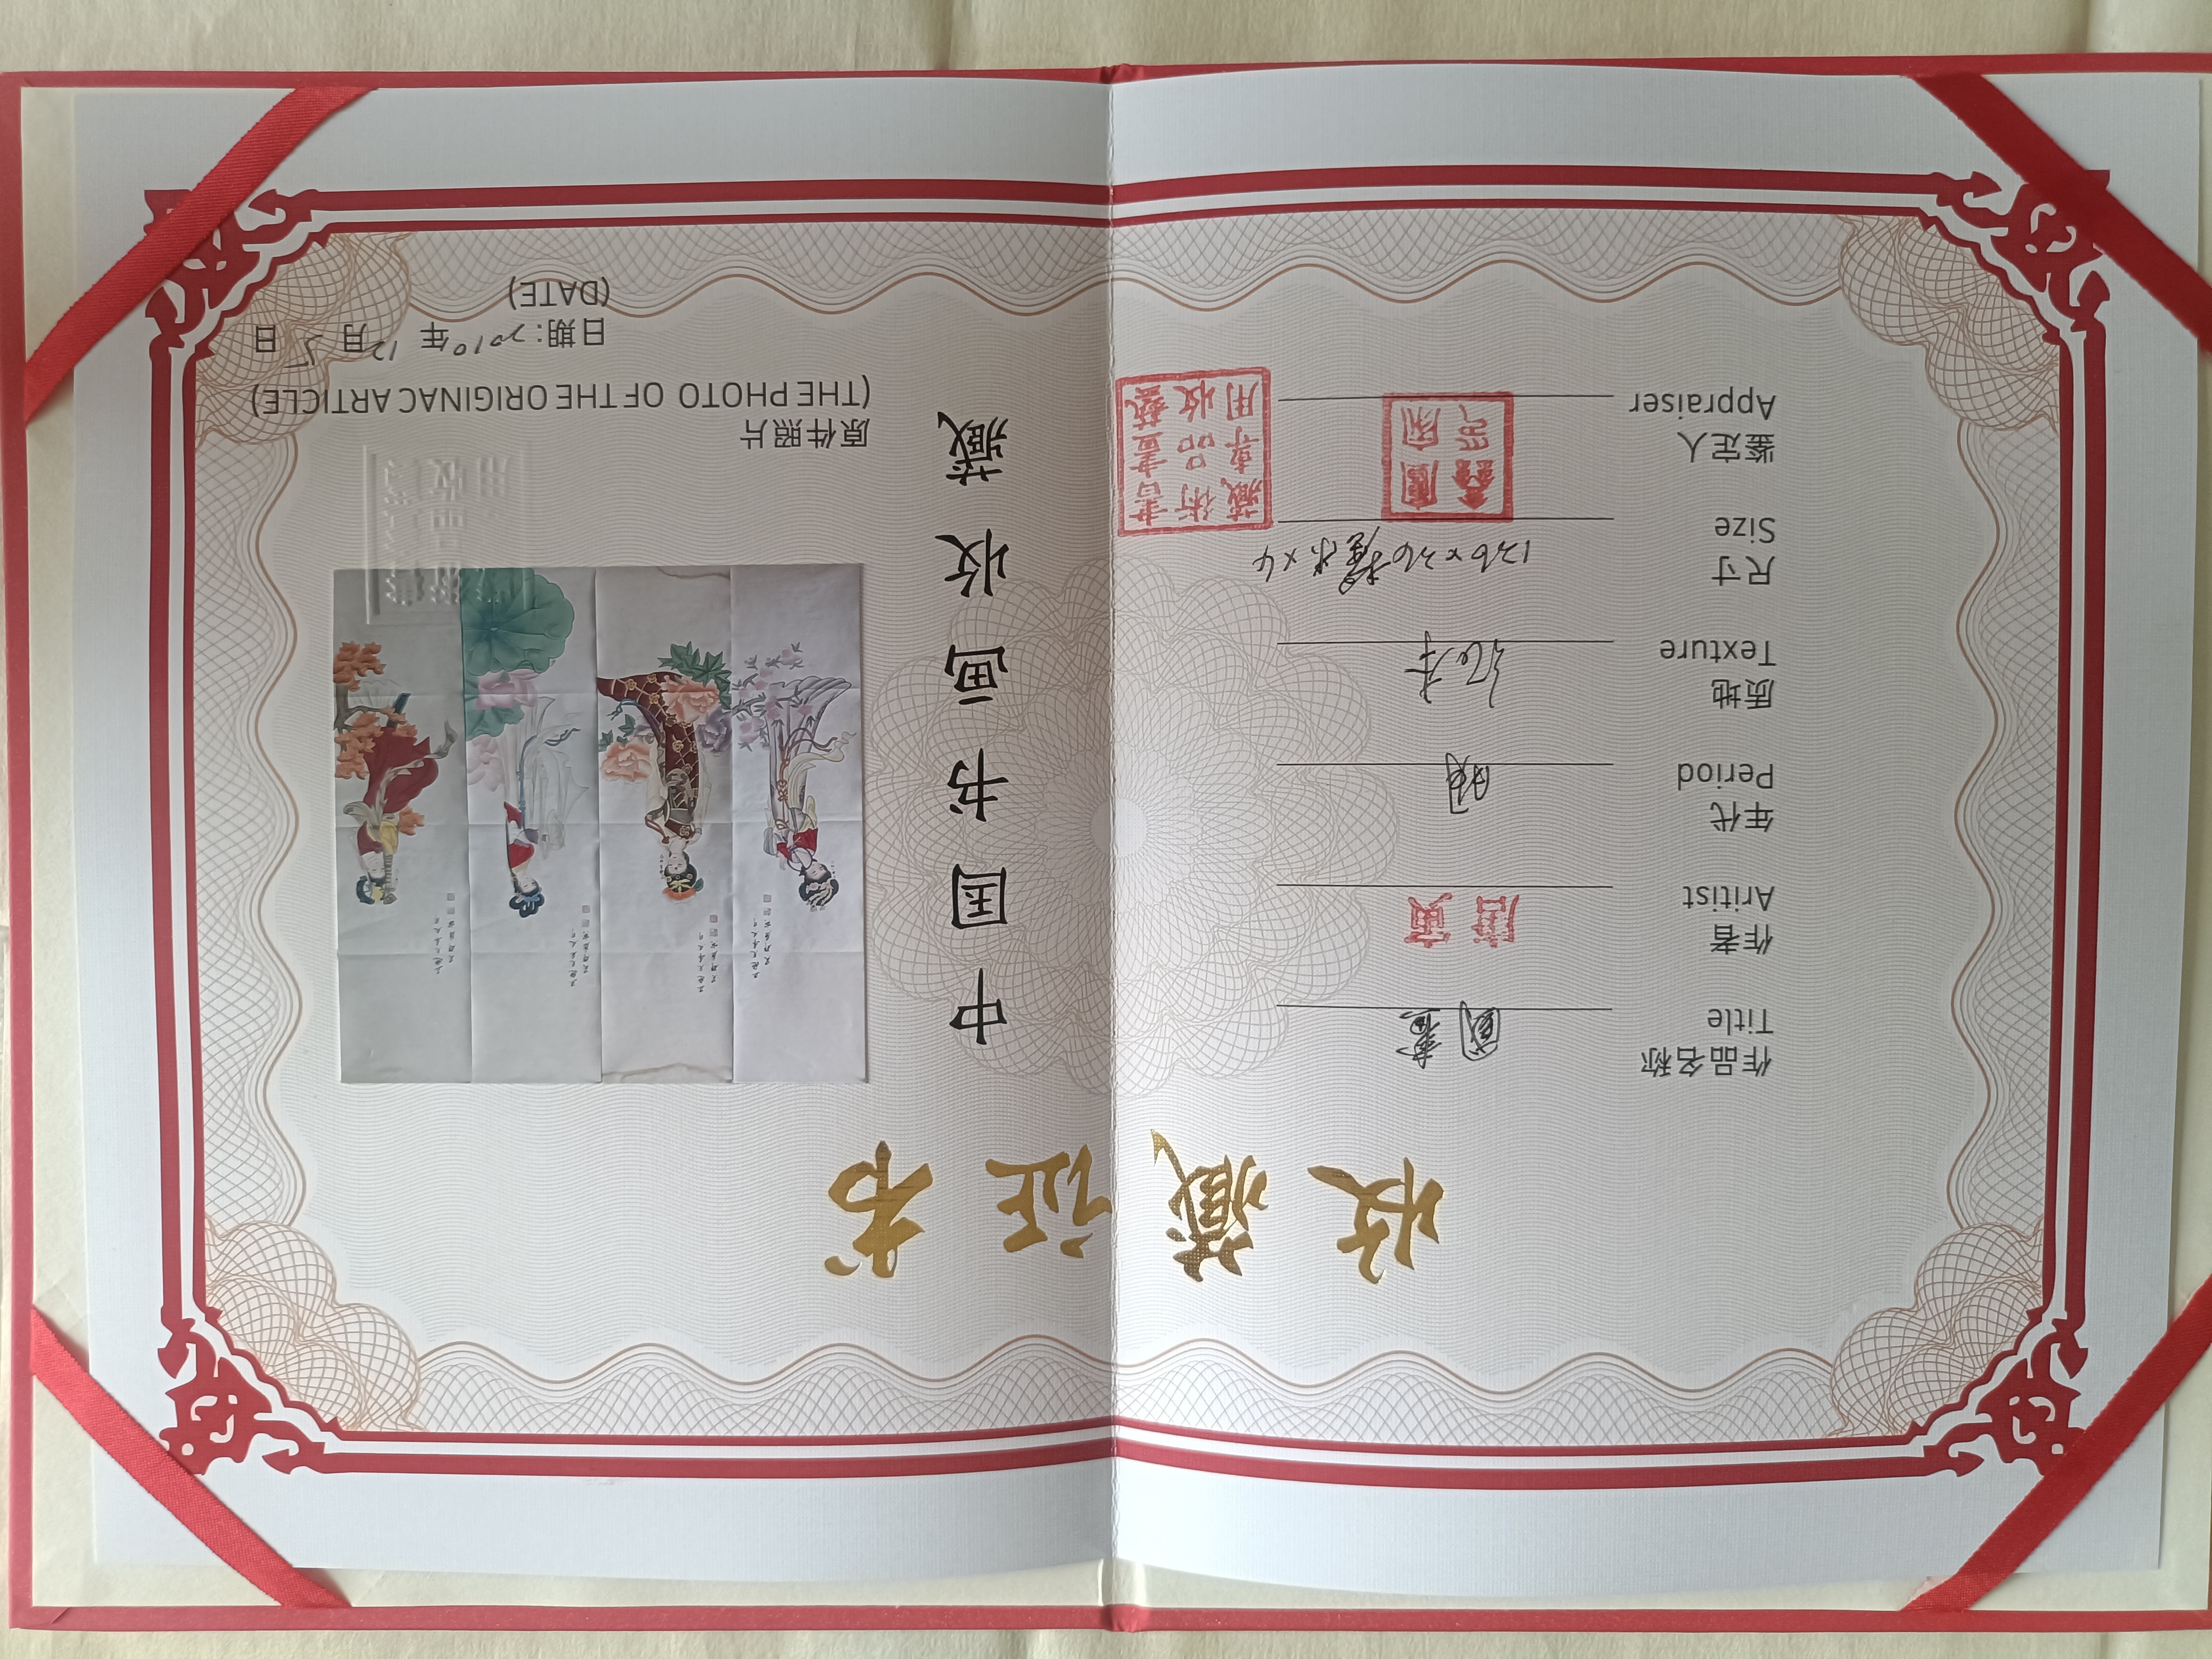 收藏证书
作品名称
Title
國畫
作者
Aritist
唐寅
年代
Period
明
质地
Texture
纸本
尺寸
Size
136×36厘米×4
鉴定人
Appraiser
書畫藝
術品收
藏專用
中国书画收藏
原件照片
(THE PHOTO OF THE ORIGINAC ARTICLE)
日期:2010年12月5日
(DATE)